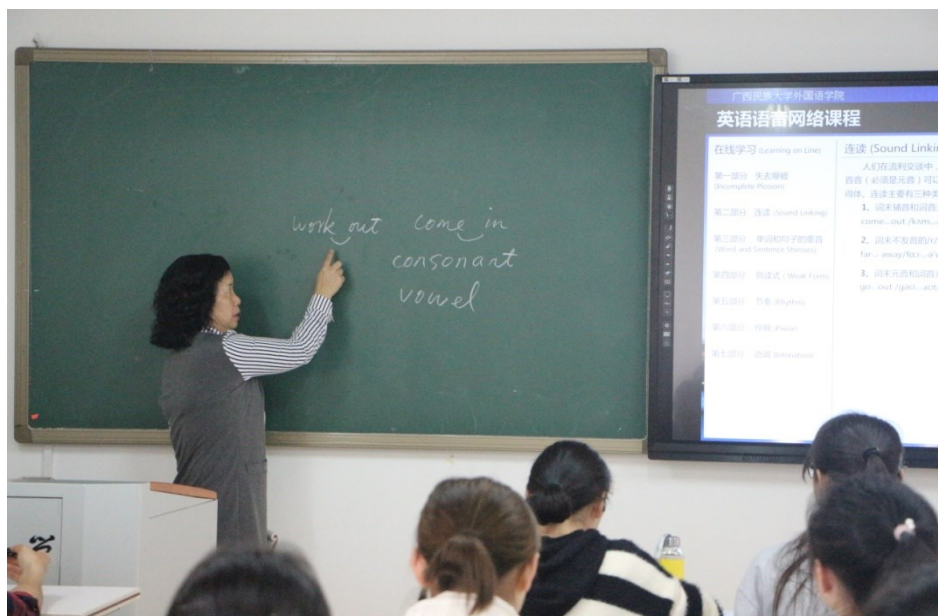 work out come in
consonant
vowel
广西民族大学外国语学院
英语语音网络课程
在线学习 (Learning on Line)
第一部分 失去爆破
(Incomplete Plosion)
第二部分 连读 (Sound Linking)
第三部分 单词和句子的重音
(Word and Sentence Stresses)
第四部分 弱读式 (Weak Forms)
第五部分 节奏 (Rhythm)
第六部分 停顿 (Pause)
第七部分 语调 (Intonation)
连读 (Sound Linkin
人们在流利交谈中，
首音（必须是元音）可以
得体。连读主要有三种类
1、词末辅音和词首
come...out
2、词末不发音的/r/
far... away
3、词末元音和词首
go...out
学